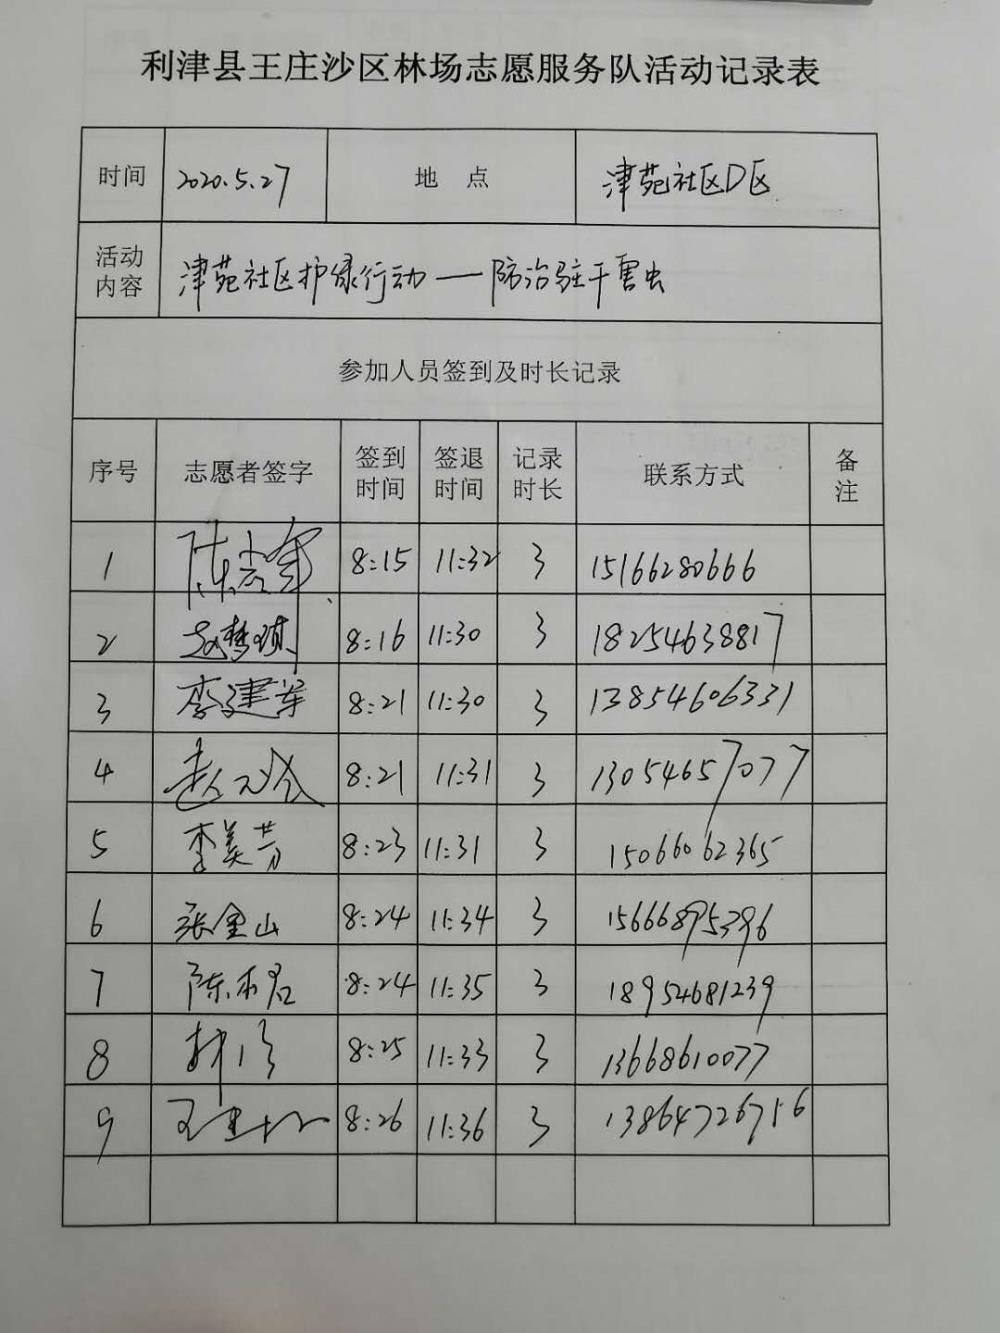 利津县王庄沙区林场志愿服务队活动记录表
时间 2020.5.27 地 点 津苑社区D区
活动内容 津苑社区护绿行动——防治驻干害虫
参加人员签到及时长记录
序号 志愿者签字 签到时间 签退时间 记录时长 联系方式 备注
1 陈志军 8:15 11:32 3 15166280666
2 赵梦琪 8:16 11:30 3 18254638817
3 李建军 8:21 11:30 3 13854606331
4 8:21 11:31 3 13054657077
5 李美芳 8:23 11:31 3 15066062365
6 张金山 8:24 11:34 3 15666895396
7 8:24 11:35 3 18954681239
8 8:25 11:33 3 13668610077
9 8:26 11:36 3 13864726756